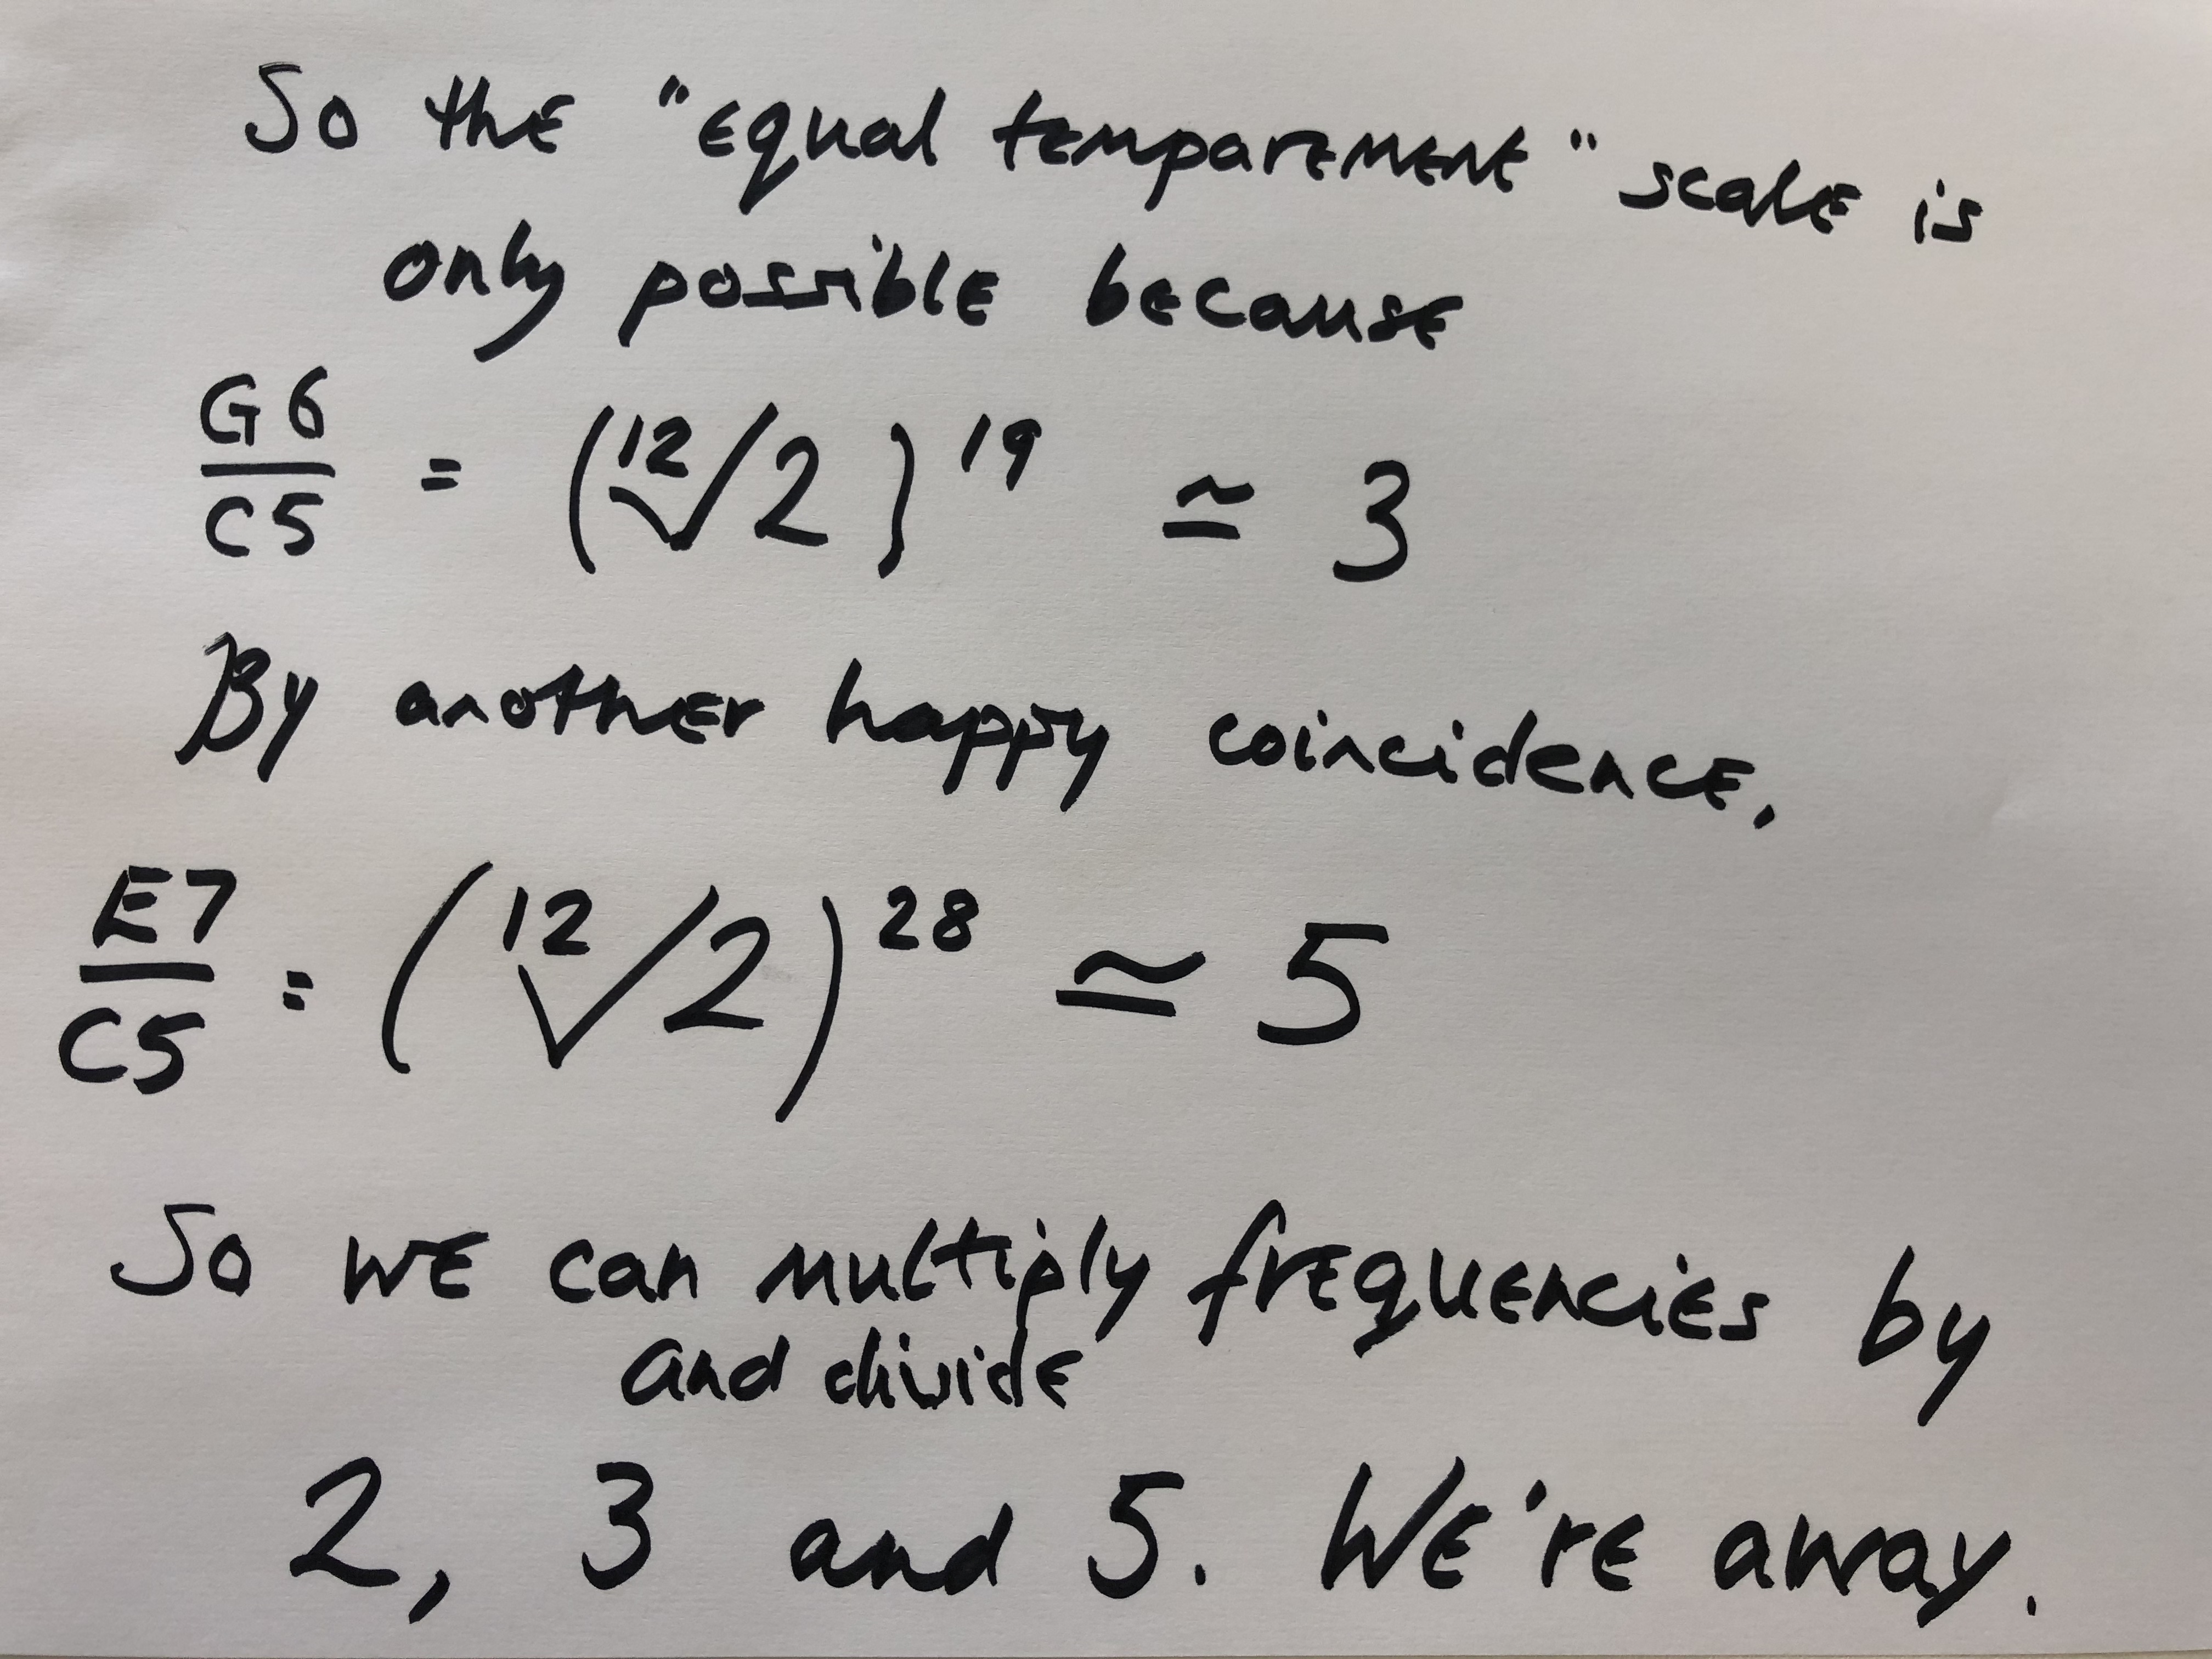 So the "equal temparement" scale is
only possible because
G6/C5 = (¹²√2)¹⁹ ≃ 3
By another happy coincidence,
E7/C5 = (¹²√2)²⁸ ≃ 5
So we can multiply frequencies by
and divide
2, 3 and 5. We're away.